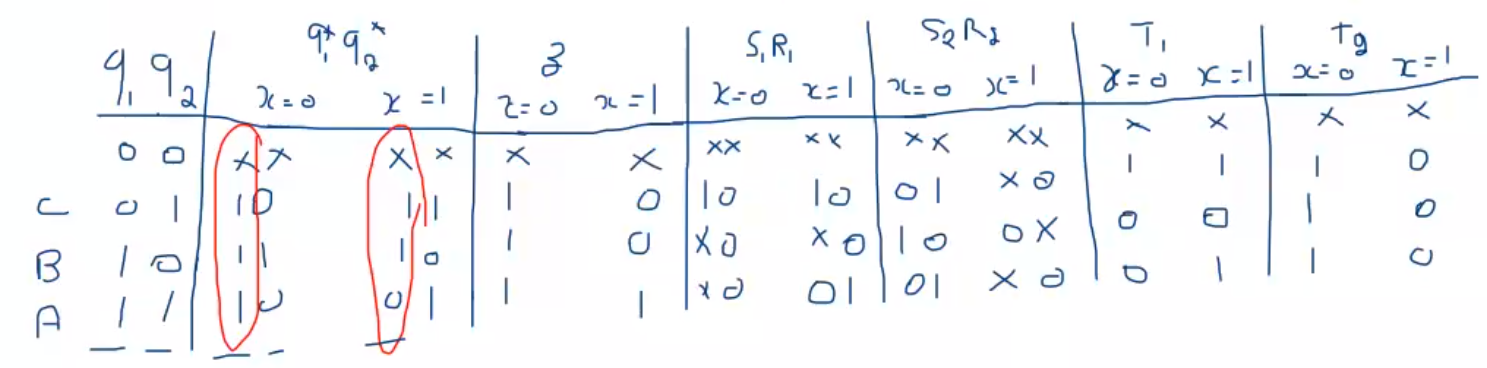 q₁ q₂ q₁* q₂* z S₁R₁ S₂R₂ T₁ T₂
x=0 x=1 x=0 x=1 x=0 x=1 x=0 x=1 x=0 x=1 x=0 x=1
0 0 x x x x x x xx xx xx xx x x x x
C 0 1 1 0 1 1 1 0 1 0 1 0 0 1 x 0 1 1 1 0
B 1 0 1 1 1 0 1 0 x 0 x 0 1 0 0 x 0 0 1 0
A 1 1 1 0 0 1 1 1 x 0 0 1 0 1 x 0 0 1 1 0